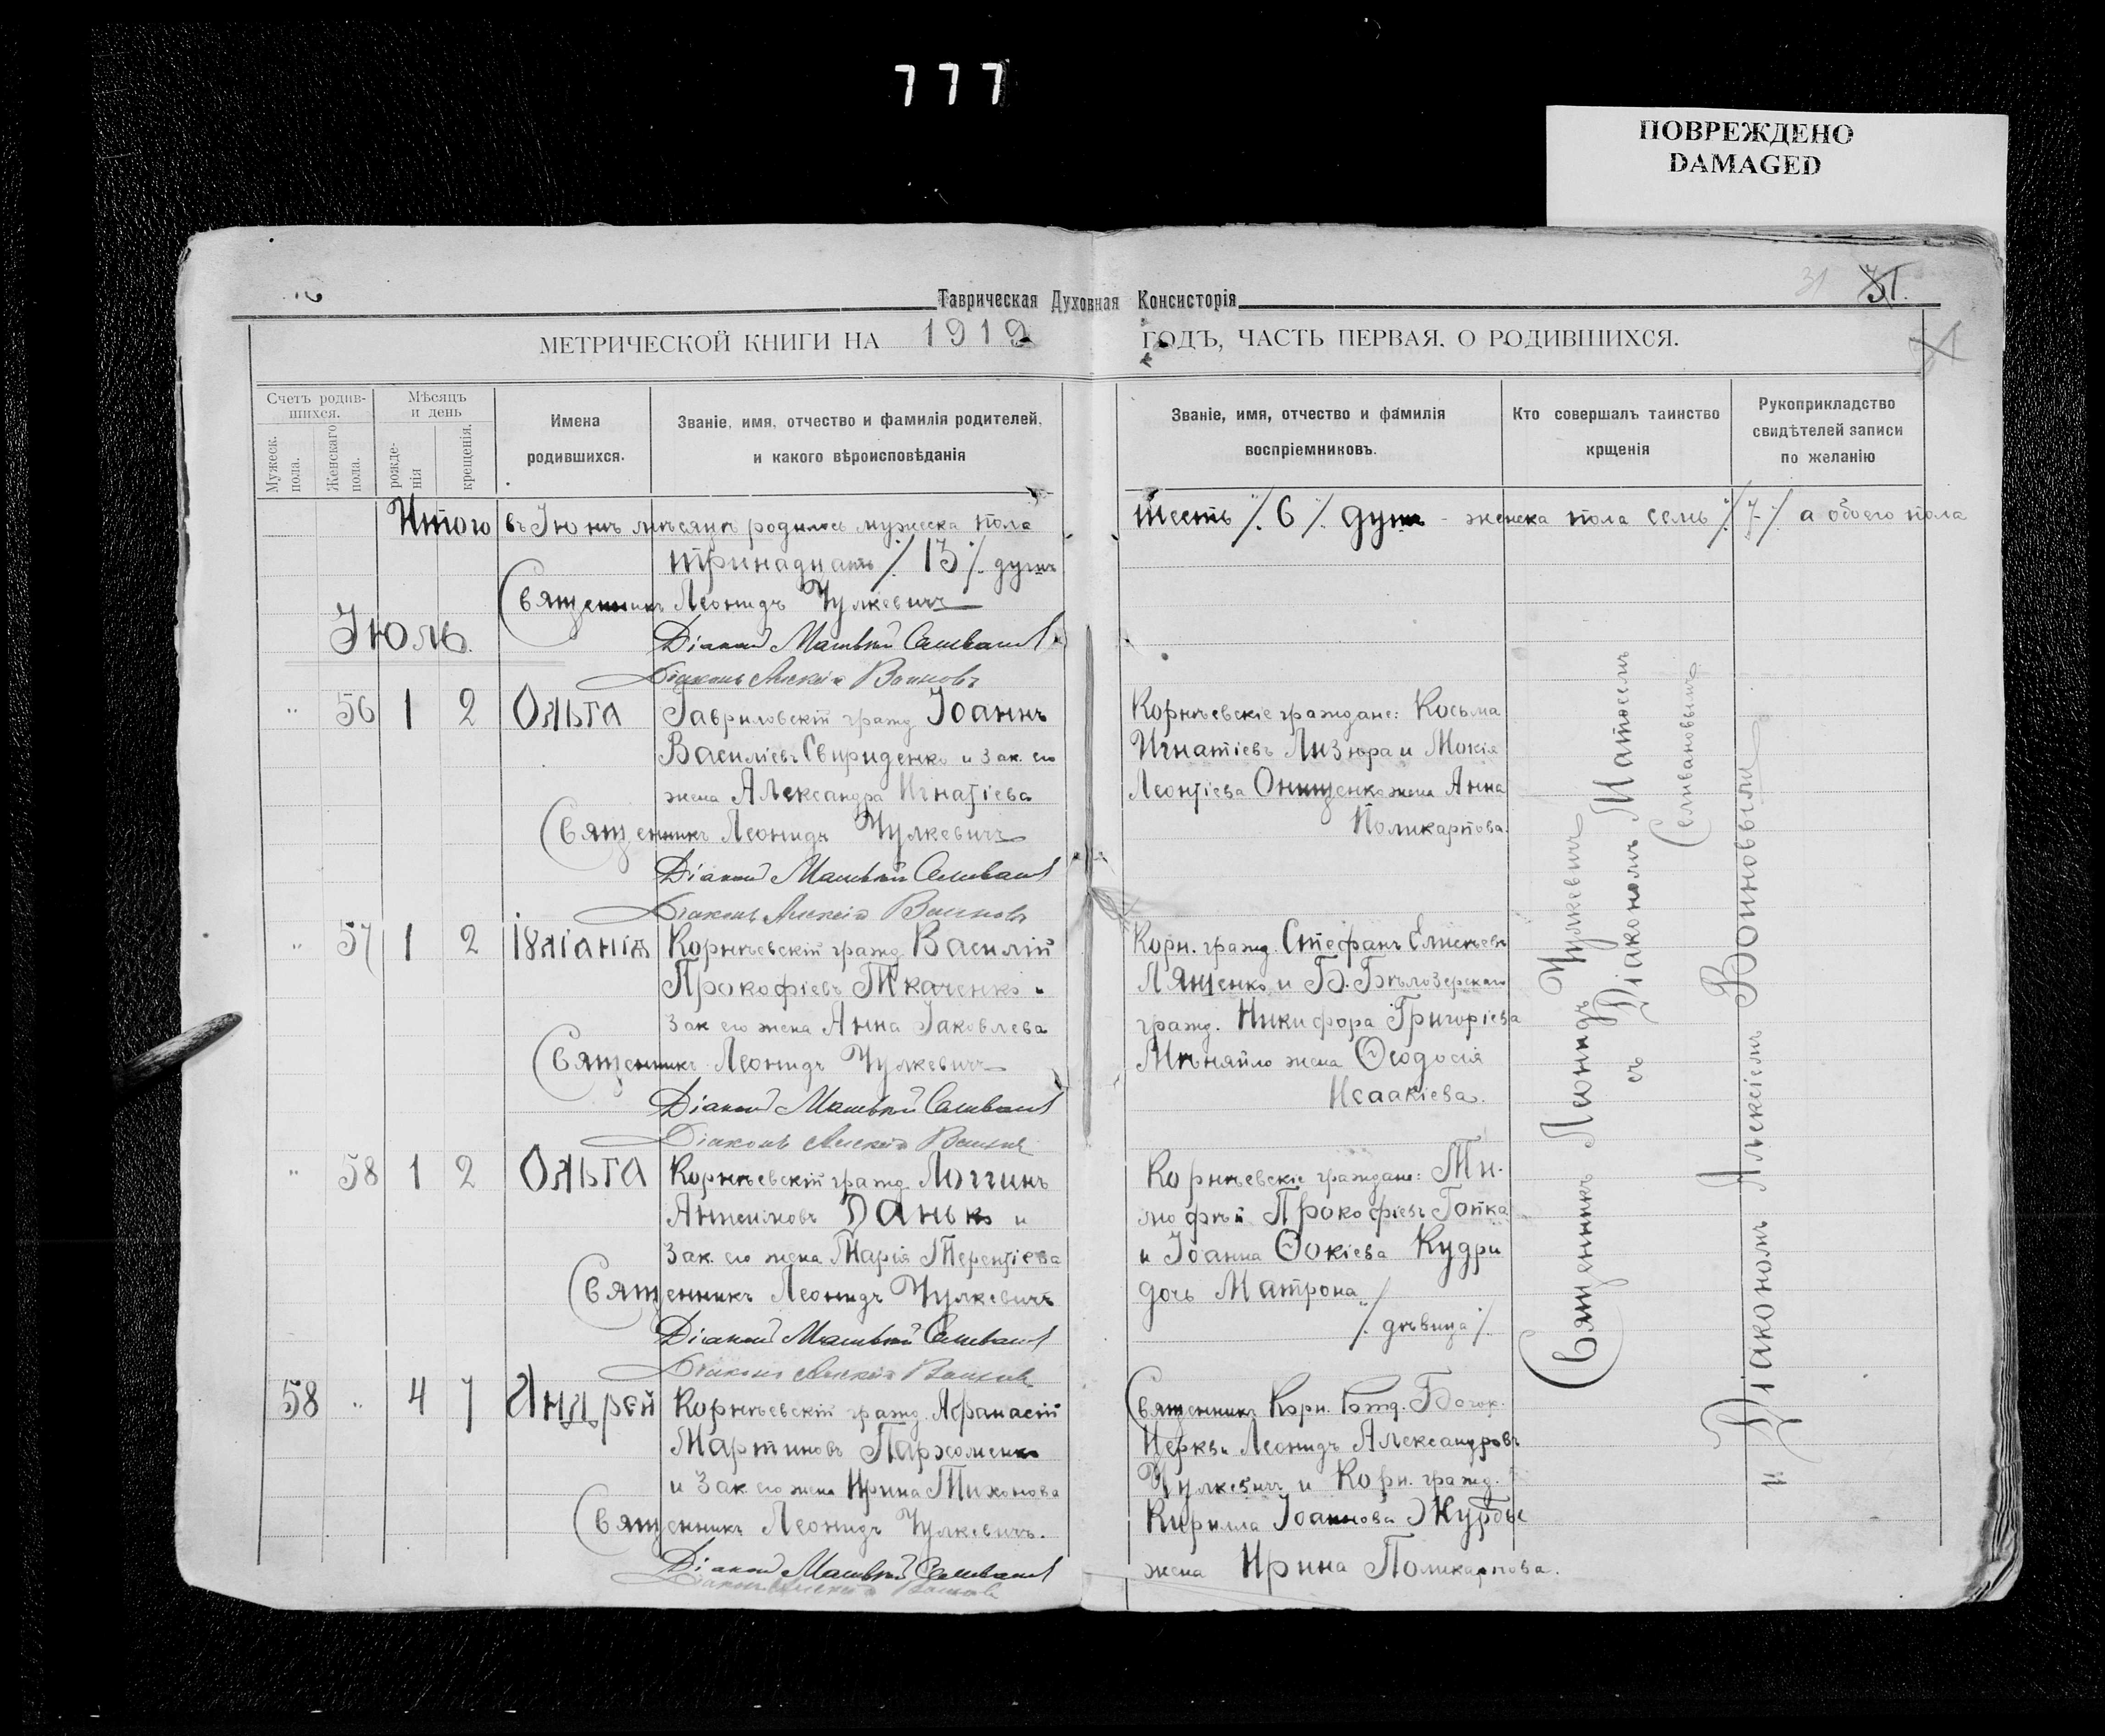 777
ПОВРЕЖДЕНО
DAMAGED
31
31.
Таврическая Духовная Консисторія
МЕТРИЧЕСКОЙ КНИГИ НА 1919 ГОДЪ, ЧАСТЬ ПЕРВАЯ. О РОДИВШИХСЯ.
Счетъ родив-
шихся.
Мужеск.
пола.
Женскаго
пола.
Мѣсяцъ
и день
рожде-
нія
крещенія.
Имена
родившихся.
Званіе, имя, отчество и фамилія родителей,
и какого вѣроисповѣданія
Званіе, имя, отчество и фамилія
воспріемниковъ.
Кто совершалъ таинство
крщенія
Рукоприкладство
свидѣтелей записи
по желанію
Итого въ Іюнѣ мѣсяцѣ родилось мужеска пола шесть /. 6 /. душъ - женска пола семь /. 7 /. а обоего пола
тринадцать /. 13 /. душъ
Священникъ Леонидъ Чулкевичъ
Іюль.
Діаконъ Матѳей Селивановъ
Діаконъ Алексій Воиновъ
" 56 1 2 Ольга Гавриловскій гражд. Іоаннъ
Василіевъ Свириденко и зак. его
жена Александра Игнатіева
Священникъ Леонидъ Чулкевичъ
Діаконъ Матѳей Селивановъ
Діаконъ Алексій Воиновъ
Корнѣевскіе граждане: Косьма
Игнатіевъ Лизюра и Мокія
Леонтіева Онищенко жена Анна
Поликарпова.
" 57 1 2 Іуліанія Корнѣевскій гражд. Василій
Прокофіевъ Ткаченко и
зак. его жена Анна Іаковлева
Священникъ Леонидъ Чулкевичъ
Діаконъ Матѳей Селивановъ
Діаконъ Алексій Воиновъ
Корн. гражд. Стефанъ Елисѣевъ
Лященко и Б. Бѣлозерскаго
гражд. Никифора Григоріева
Мѣняйло жена Ѳеодосія
Исаакіева.
" 58 1 2 Ольга Корнѣевскій гражд. Логгинъ
Анисимовъ Данько и
зак. его жена Марія Терентіева
Священникъ Леонидъ Чулкевичъ
Діаконъ Матѳей Селивановъ
Діаконъ Алексій Воиновъ
Корнѣевскіе граждане: Ти-
моѳей Прокофіевъ Гопка
и Іоанна Ѳокіева Кудри
дочь Матрона
/. дѣвица /.
58 " 4 7 Андрей Корнѣевскій гражд. Афанасій
Мартиновъ Пархоменко
и зак. его жена Ирина Тихонова
Священникъ Леонидъ Чулкевичъ.
Діаконъ Матѳей Селивановъ
Діаконъ Алексій Воиновъ
Священникъ Корн. Рожд. Богор.
Церкви Леонидъ Александровъ
Чулкевичъ и Корн. гражд.
Кирилла Іоаннова Журбы
жена Ирина Поликарпова.
Священникъ Леонидъ Чулкевичъ
съ Діакономъ Матѳеемъ
Селивановымъ
и Діакономъ Алексіемъ Воиновымъ